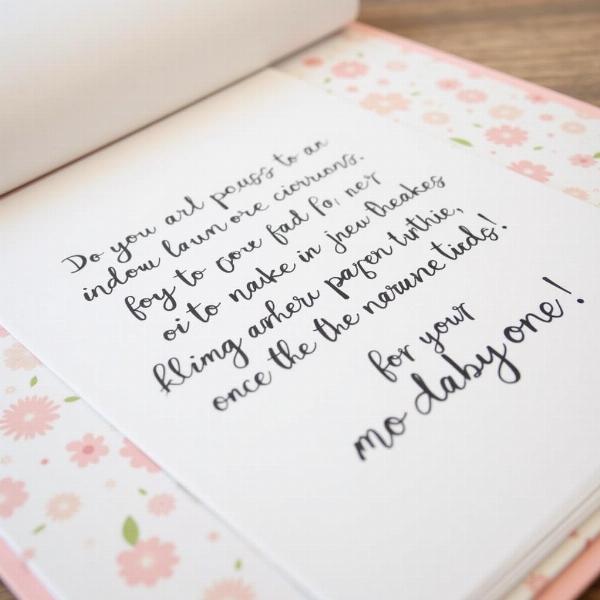 Do you arl pouss to an
indow laun ore ciorruons.
foy to cow fad fo, ner
oi to nake in jneu theakes
klimg arheru pazen turthie,
once the the narwne tieds!
for your
mo daby one!